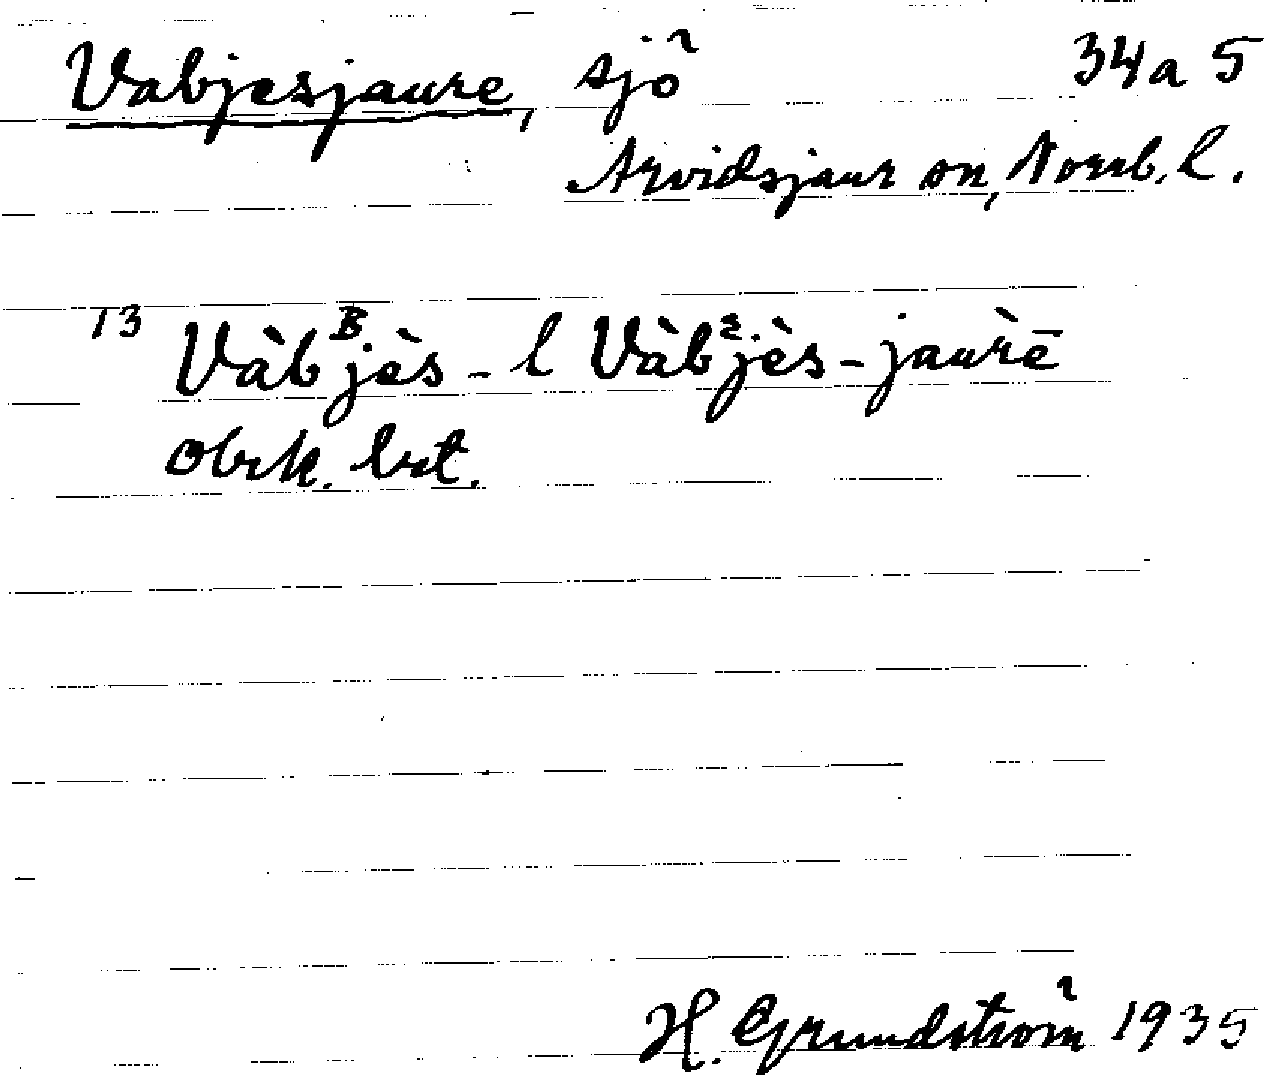 Vabjesjaure, sjö 34a 5
Arvidsjaur sn, Norrb. l.
13 Vàbᴮjès- l Vàbᵋjès-jaùrē
obek. bet.
H. Grundström 1935